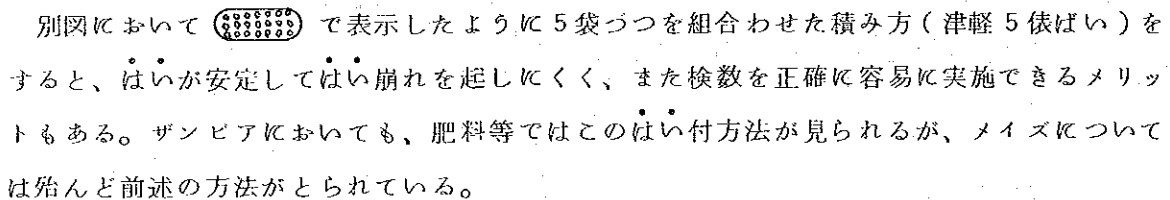 別図において で表示したように5袋づつを組合わせた積み方(津軽5俵ばい)を
すると、はいが安定してはい崩れを起しにくく、また検数を正確に容易に実施できるメリッ
トもある。ザンビアにおいても、肥料等ではこのはい付方法が見られるが、メイズについて
は殆んど前述の方法がとられている。